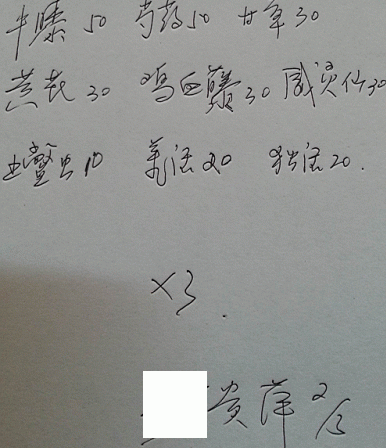 牛膝50 芍药50 甘草30
黄芪30 鸡血藤30 威灵仙30
土鳖虫10 羌活20 独活20.
×3.
贵萍 2/3